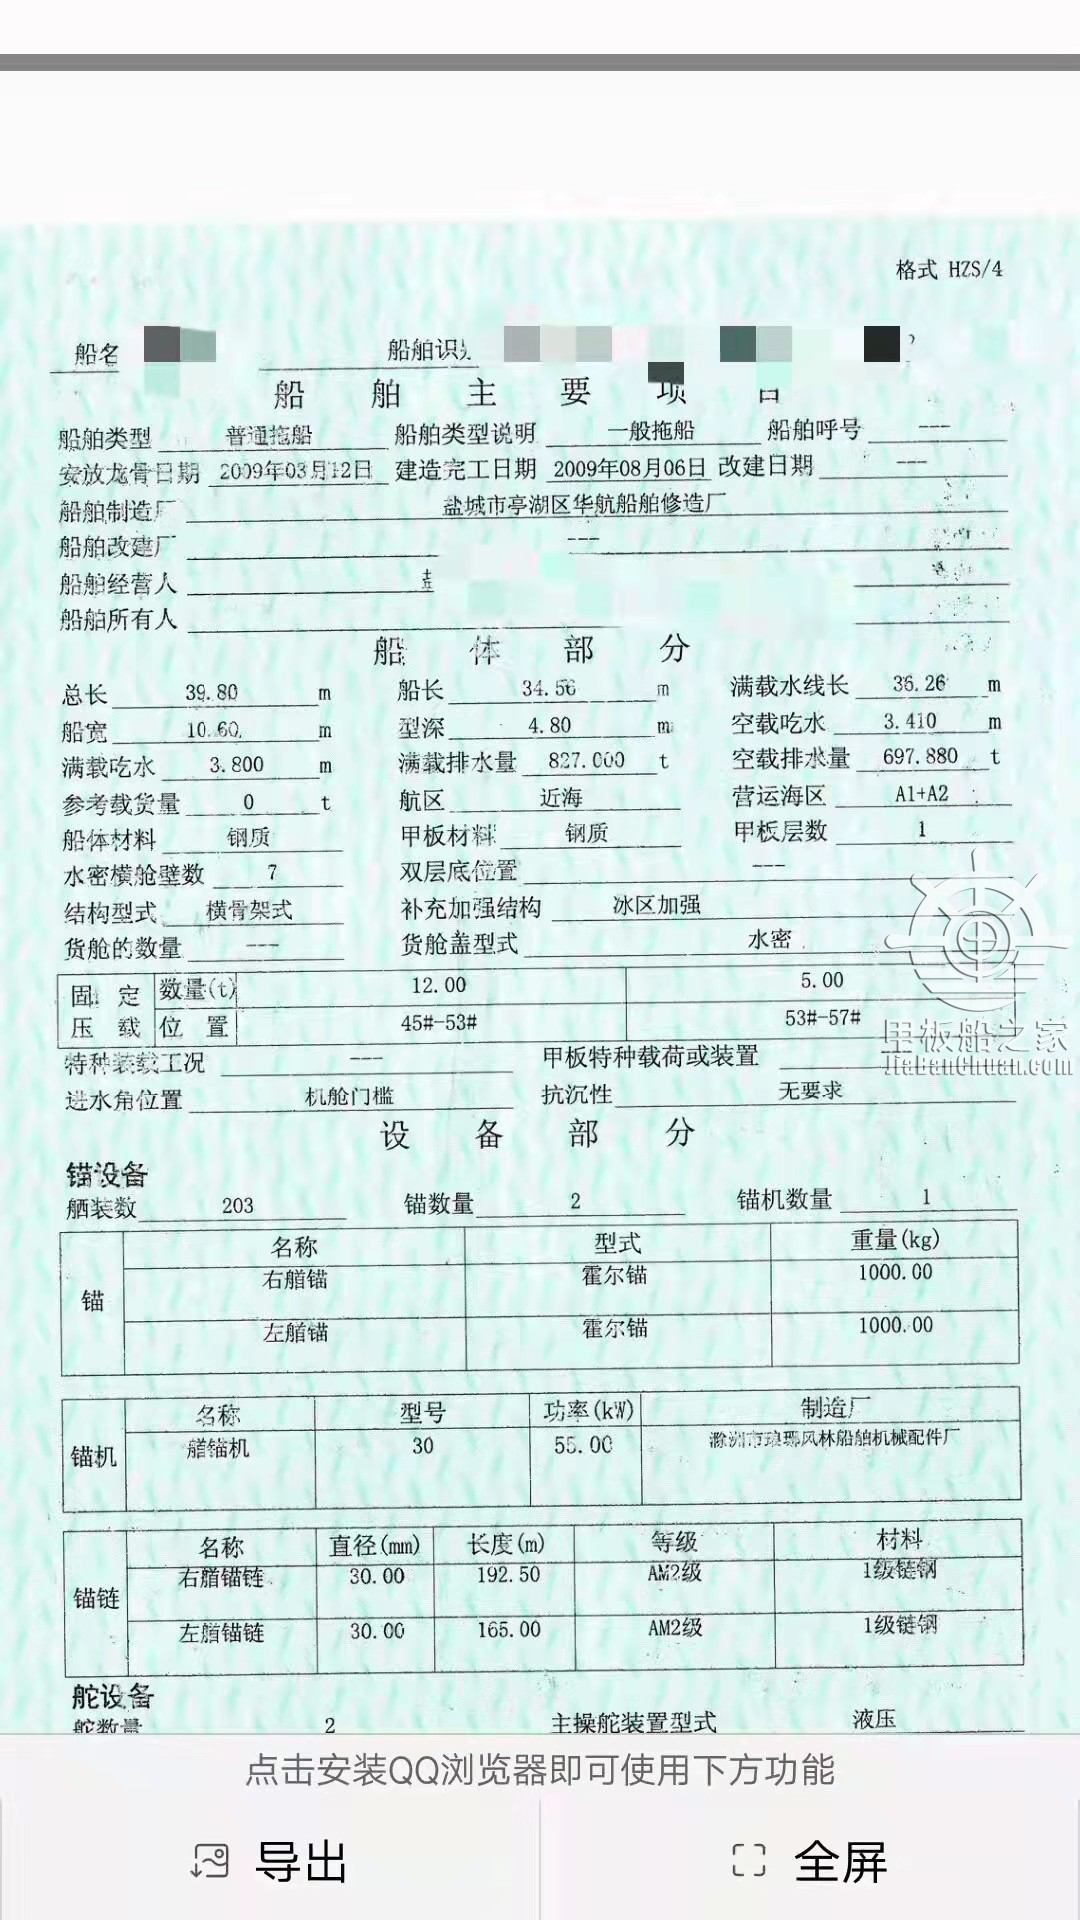 格式 HZS/4
船名 船舶识
船舶主要项目
船舶类型 普通拖船 船舶类型说明 一般拖船 船舶呼号 ---
安放龙骨日期 2009年03月12日 建造完工日期 2009年08月06日 改建日期 ---
船舶制造厂 盐城市亭湖区华航船舶修造厂
船舶改建厂 ---
船舶经营人
船舶所有人
船体部分
总长 39.80 m 船长 34.56 m 满载水线长 36.26 m
船宽 10.60 m 型深 4.80 m 空载吃水 3.410 m
满载吃水 3.800 m 满载排水量 827.000 t 空载排水量 697.880 t
参考载货量 0 t 航区 近海 营运海区 A1+A2
船体材料 钢质 甲板材料 钢质 甲板层数 1
水密横舱壁数 7 双层底位置 ---
结构型式 横骨架式 补充加强结构 冰区加强
货舱的数量 --- 货舱盖型式 水密
固定压载 数量(t) 12.00 5.00
位置 45#-53# 53#-57#
甲板船之家
JiaBanChuan.com
特种装载工况 --- 甲板特种载荷或装置
进水角位置 机舱门槛 抗沉性 无要求
设备部分
锚设备
舾装数 203 锚数量 2 锚机数量 1
锚 名称 型式 重量(kg)
右艏锚 霍尔锚 1000.00
左艏锚 霍尔锚 1000.00
锚机 名称 型号 功率(kW) 制造厂
艏锚机 30 55.00 滁洲市琅琊风林船舶机械配件厂
锚链 名称 直径(mm) 长度(m) 等级 材料
右艏锚链 30.00 192.50 AM2级 1级链钢
左艏锚链 30.00 165.00 AM2级 1级链钢
舵设备
舵数量 2 主操舵装置型式 液压
点击安装QQ浏览器即可使用下方功能
导出 全屏